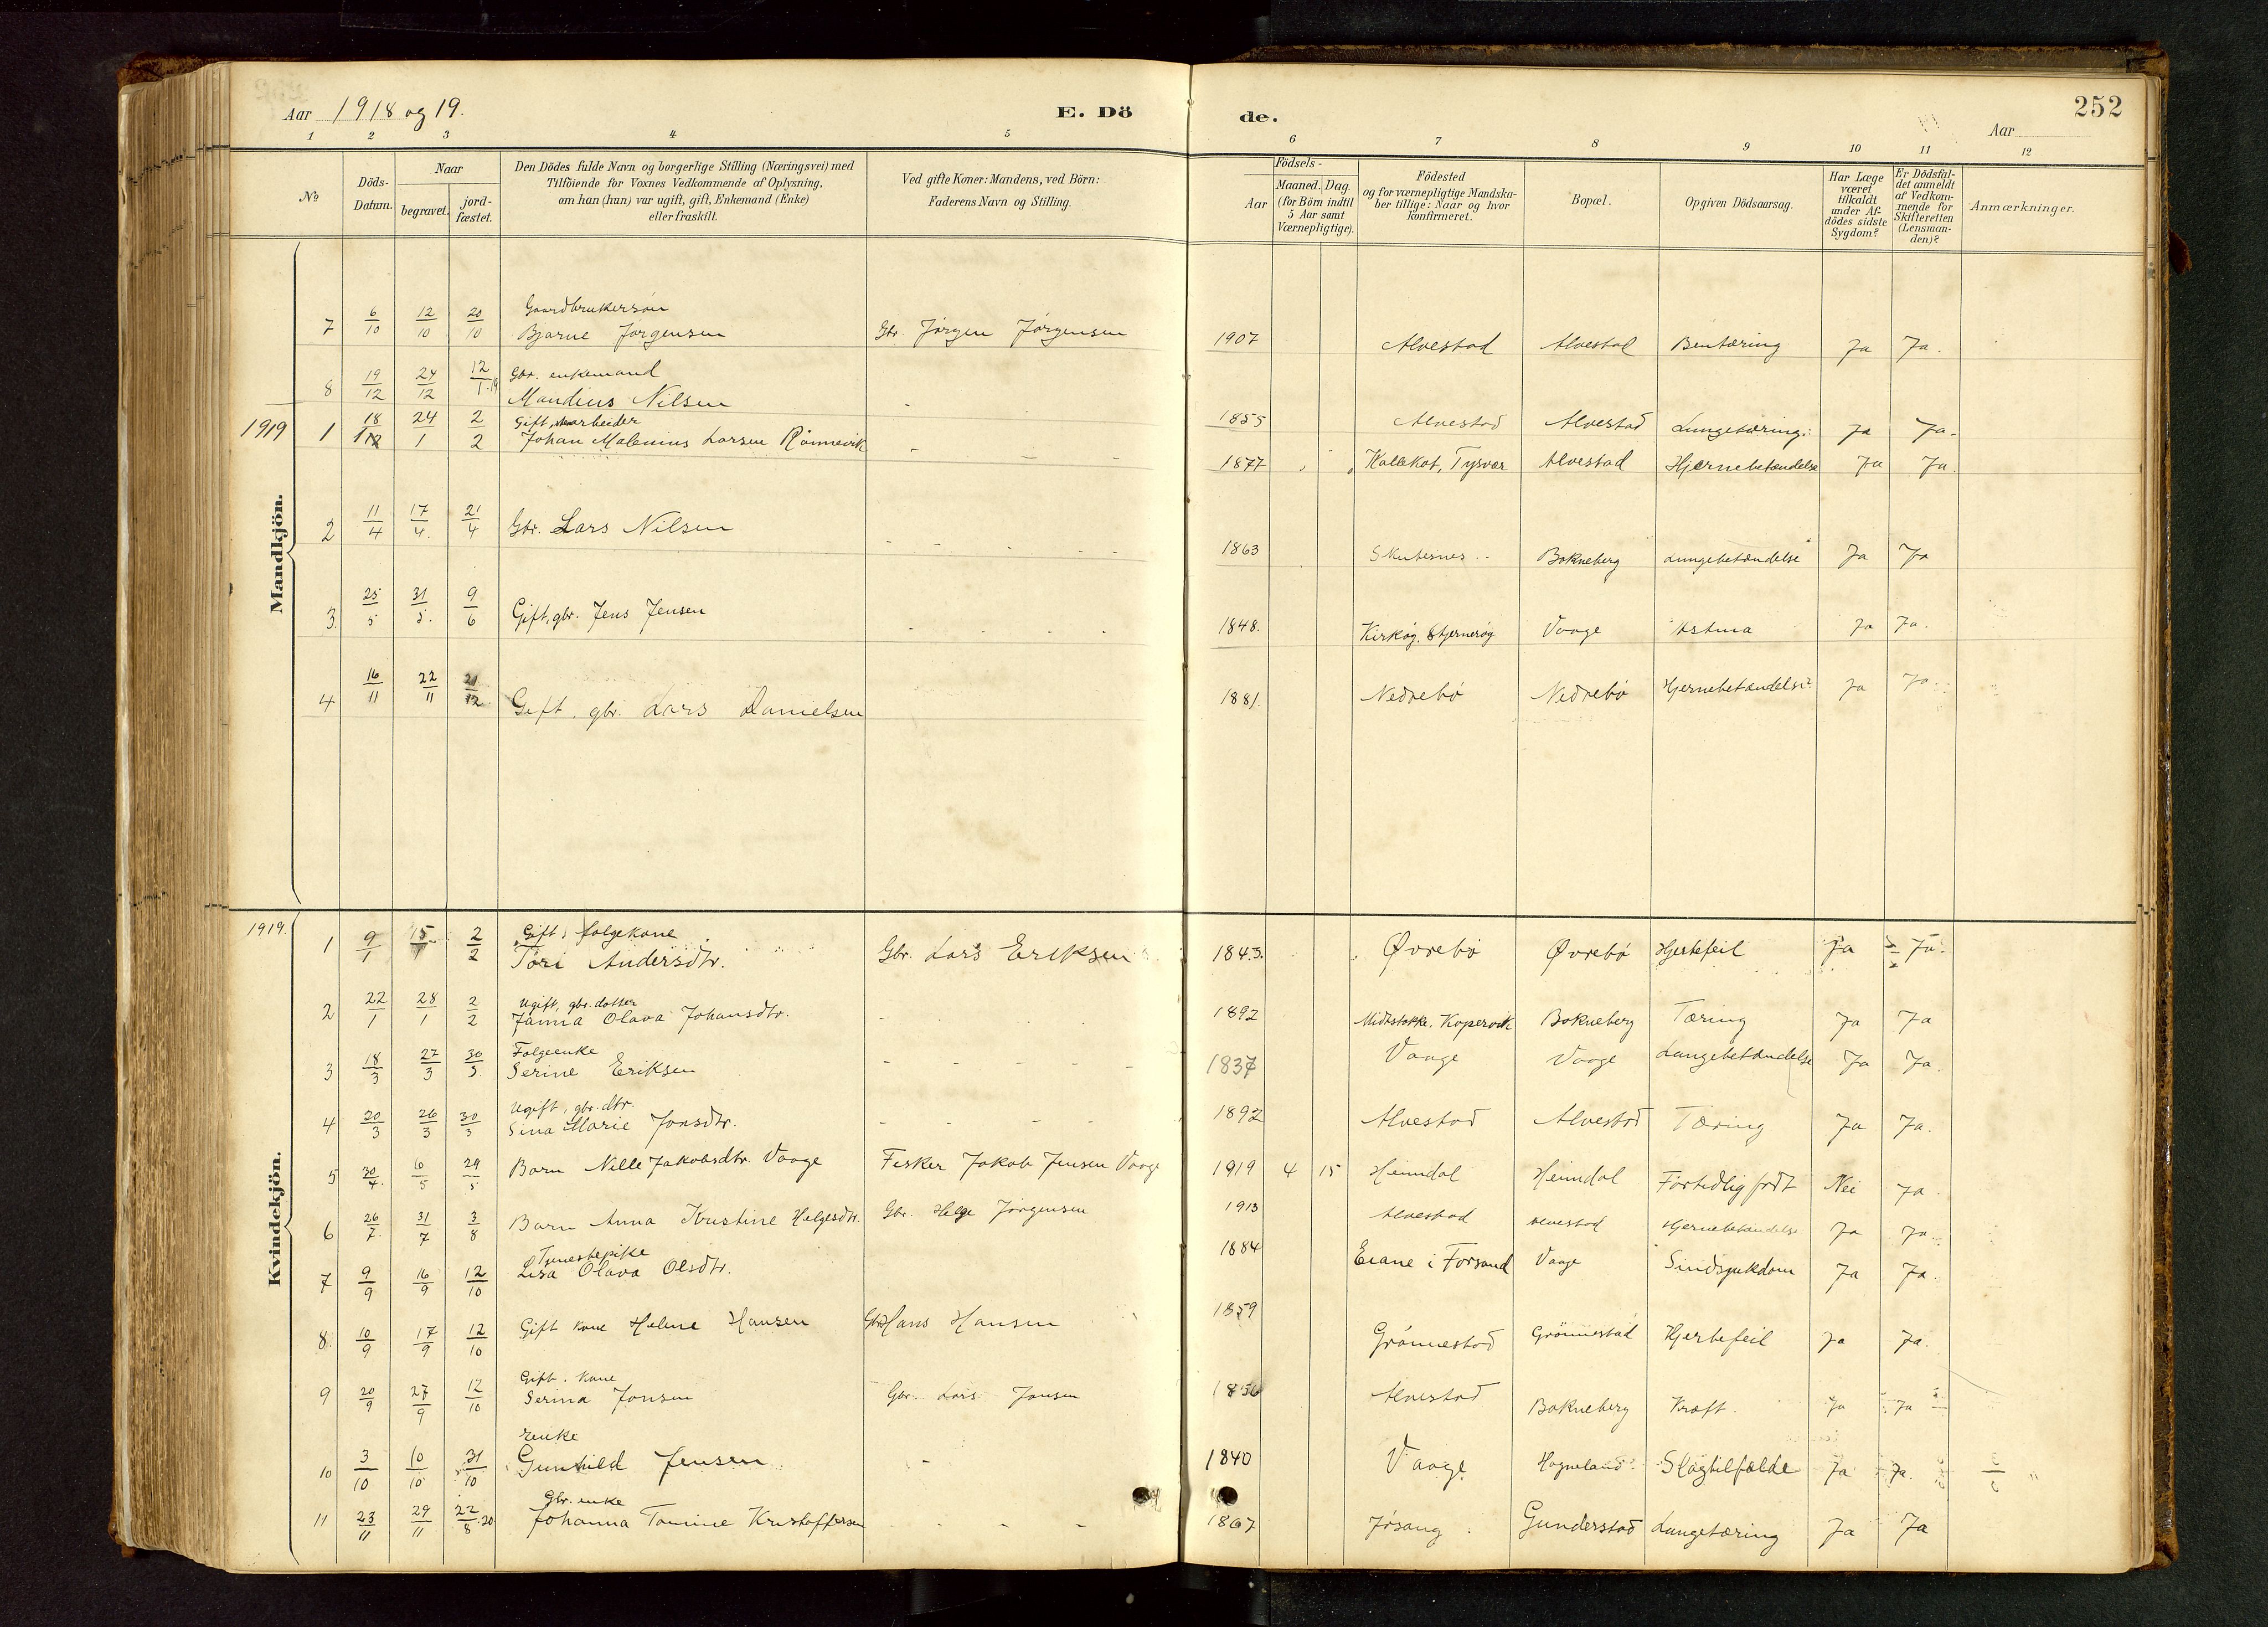 Aar 1918 og 19.
E. Dö
de.
Aar
252
1 2 3 4 5 6 7 8 9 10 11 12
No
Döds-
Datum.
Naar
begravet.
jord-
fæstet.
Den Dödes fulde Navn og borgerlige Stilling (Næringsvei) med
Tilföiende for Voxnes Vedkommende af Oplysning,
om han (hun) var ugift, gift, Enkemand (Enke)
eller fraskilt.
Ved gifte Koner: Mandens, ved Börn:
Faderens Navn og Stilling.
Födsels-
Aar
Maaned. Dag.
(for Börn indtil
5 Aar samt
Værnepligtige).
Födested
og for værnepligtige Mandska-
ber tillige: Naar og hvor
konfirmeret.
Bopæl.
Opgiven Dödsaarsag.
Har Læge
været
tilkaldt
under Af-
dödes sidste
Sygdom?
Er Dödsfal-
det anmeldt
af Vedkom-
mende for
Skifteretten
(Lensman-
den)?
Anmærkninger.
Mandkjön.
Gaardbrukersøn
7 6/10 12/10 20/10 Bjarne Jørgensen Gbr. Jørgen Jørgensen 1907 Alvestad Alvestad Bentæring Ja Ja.
Gbr. enkemand
8 19/12 24/12 12/1.19 Mandius Nilsen - 1855 Alvestad Alvestad Lungetæring. Ja Ja.
Gift, arbeider
1919 1 18/1 24/1 2/2 Johan Malenius Larsen Rønnevik - - - 1877 Kallekot, Tysvær Alvestad Hjernebetændelse Ja Ja.
2 11/4 17/4. 21/4 Gbr. Lars Nilsen - - - - - 1863 Skutesnes Bokneberg Lungebetændelse Ja Ja
3. 25/5 31/5. 9/6 Gift, gbr. Jens Jensen - - - 1848. Kirkøy, Stjernerøy Vaage Astma Ja Ja.
4 16/11 22/11 21/12. Gift, gbr. Lars Danielsen 1881. Nedrebø Nedrebø Hjernebetændelse Ja Ja
Kvindekjön.
1919.
Gift, følgekone
1 9/1 15/1 2/2 Tori Andersdtr. Gbr. Lars Eriksen 1843. Øvrebø Øvrebø Hjertefeil Ja Ja.
Ugift, gbr. datter
2 22/1 28/1 2/2 Janna Olava Johansdtr. - - - 1892 Midtstokke, Kopervik Bokneberg Tæring Ja Ja
Følgeenke
3 18/3 27/3 30/5. Serine Eriksen - - - - - 1837 Vaage Vaage Lungebetændelse Ja Ja.
Ugift, gbr. dtr.
4 20/3 26/3 30/3 Sina Marie Jonsdtr. - - - - 1892 Alvestad Alvestad Tæring Ja Ja.
5 30/4. 6/5 29/5 Barn Nille Jakobsdtr. Vaage Fisker Jakob Jensen Vaage 1919 4 15 Heimdal Heimdal Fortidlig født Nei Ja.
6 26/7. 31/7 3/8 Barn Anna Kristine Helgesdtr. Gbr. Helge Jørgensen 1913 Alvestad Alvestad Hjernebetændelse Ja Ja.
Tjenestepike
7 9/9 16/9 12/10 Lisa Olava Olsdtr. 1884 Eiane i Forsand Vaage Sindssykdom Ja Ja.
8. 10/9 17/9 12/10 Gift kone Helene Hansen Gbr. Hans Hansen 1859 Grønnestad Grønnestad Hjertefeil Ja Ja.
Gift. kone
9 20/9 27/9 12/10 Serina Jonsen Gbr. Lars Jonsen 1856 Alvestad Bokneberg Kræft. Ja Ja
enke
10 3/10 10/10 31/10 Gunhild Jensen - 1840 Vaage Hogneland Slagtilfælde Ja Ja.
Gbr. enke
11 23/11 29/11 22/8.20 Johanna Tomine Kristoffersen - - - 1867 Jøsang Gunderstad Lungetæring Ja Ja